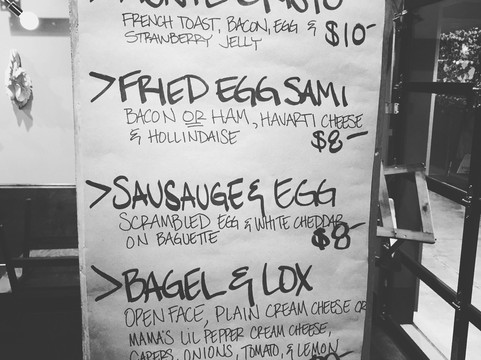 FRENCH TOAST, BACON, EGG &
STRAWBERRY JELLY $10-
>FRIED EGG SAMI
BACON OR HAM, HAVARTI CHEESE
& HOLLINDAISE $8-
>SAUSAUGE & EGG
SCRAMBLED EGG & WHITE CHEDDAR
ON BAGUETTE $8-
>BAGEL & LOX
OPEN FACE, PLAIN CREAM CHEESE OR
MAMA'S LIL PEPPER CREAM CHEESE,
CAPERS, ONIONS, TOMATO, & LEMON